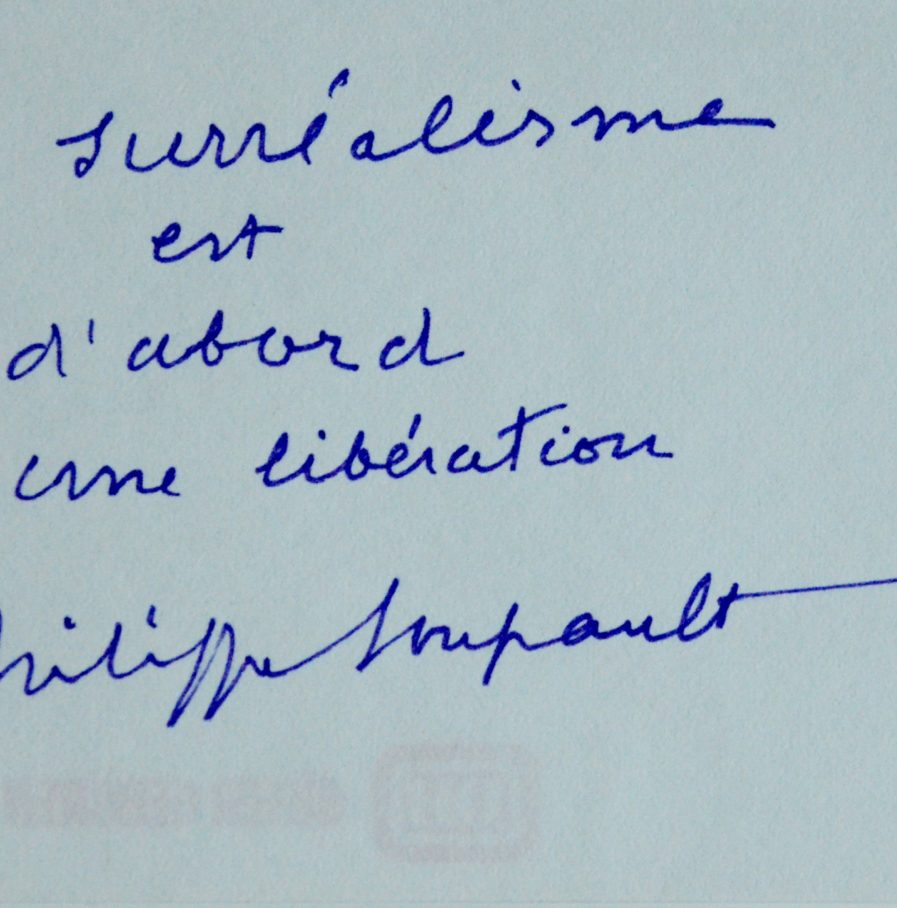 surréalisme
est
d'abord
une libération
Philippe Soupault